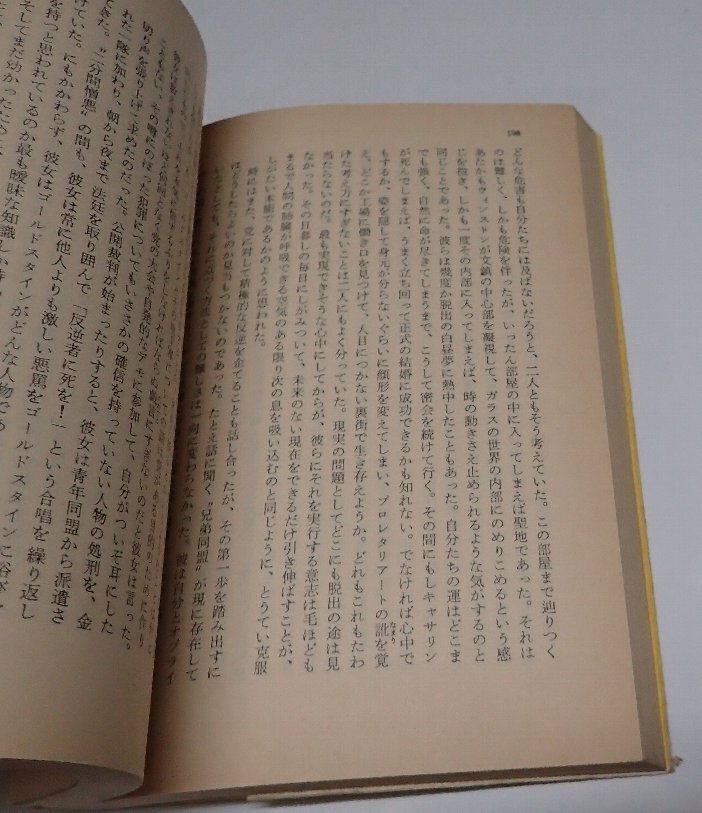 どんな危害も自分たちには及ばないだろうと、二人ともそう考えていた。この部屋まで辿りつく
のは難しく、しかも危険を伴ったが、いったん部屋の中に入ってしまえば聖地であった。それは
あたかもウィンストンが文鎮の中心部を凝視して、ガラスの世界の内部にのめりこめるという感
じを抱き、しかも一度その内部に入ってしまえば、時の動きさえ止められるような気がするのと
同じことであった。彼らは幾度か脱出の白昼夢に熱中したこともあった。自分たちの運はどこま
でも強く、自然に命が尽きてしまうまで、こうして密会を続けて行く。その間にもしキャサリン
が死んでしまえば、うまく立ち回って正式の結婚に成功できるかも知れない。でなければ心中で
もするか、姿を隠して身元が分らないぐらいに顔形を変えてしまい、プロレタリアートの訛を覚
え、どこか工場に働き口を見つけて、人目につかない裏街で生き存えようか。どれもこれもたわ
けた考え方にすぎないことは二人にもよく分っていた。現実の問題としてどこにも脱出の途は見
当たらないのだ。最も実現できそうな心中にしてからが、彼らにそれを実行する意志は毛ほども
なかった。その日暮しの毎日にしがみついて、未来のない現在をできるだけ引き伸ばすことが、
まるで人間の肺臓が呼吸できる空気のある限り次の息を吸い込むのと同じように、とうてい克服
しがたい本能であるかのように思われた。
時にはまた、党に対して積極的な反逆を企てることも話し合ったが、その第一歩を踏み出すに
はどうしたらよいのか見当もつかないのであった。たとえ話に聞く"兄弟同盟"が現に存在して
の難しさは一向に変わらなかった。彼は自分とオブライ
党の大会や自発的なデモに参加して、自分がついぞ耳にした
こともない、その噂にのぼった犯罪についてもいささかの確信を持っていない人物の処刑を、金
切り声を張り上げて求めたのだった。公開裁判が始まったりすると、彼女は青年同盟から派遣さ
れた一隊に加わり、朝から夜まで法廷を取り囲んで「反逆者に死を！」という合唱を繰り返し
てきた。"二分間憎悪"の間も、彼女は常に他人よりも激しい悪罵をゴールドスタインに浴びせ
ていた。にもかかわらず、彼女はゴールドスタインがどんな人物であ
を持つと思われているのか最も曖昧な知識しか
そしてまだ幼かったために